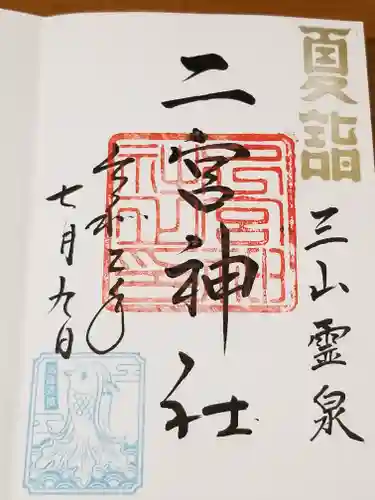 夏詣
三山霊泉
二宮神社
令和二年
七月九日